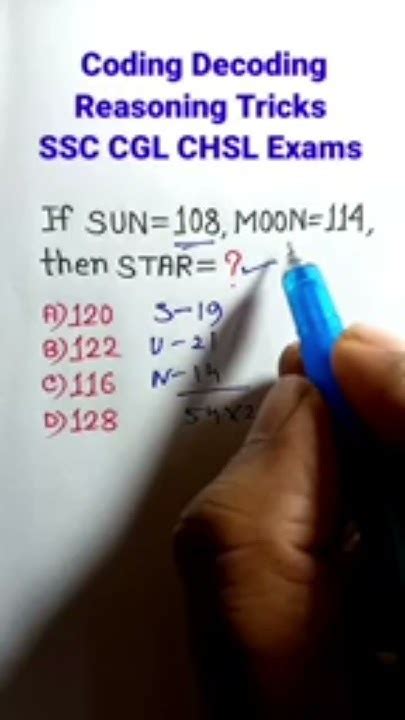 Coding Decoding
Reasoning Tricks
SSC CGL CHSL Exams
If SUN=108, MOON=114,
then STAR= ?
A) 120
B) 122
C) 116
D) 128
S-19
U-21
N-14
54x2